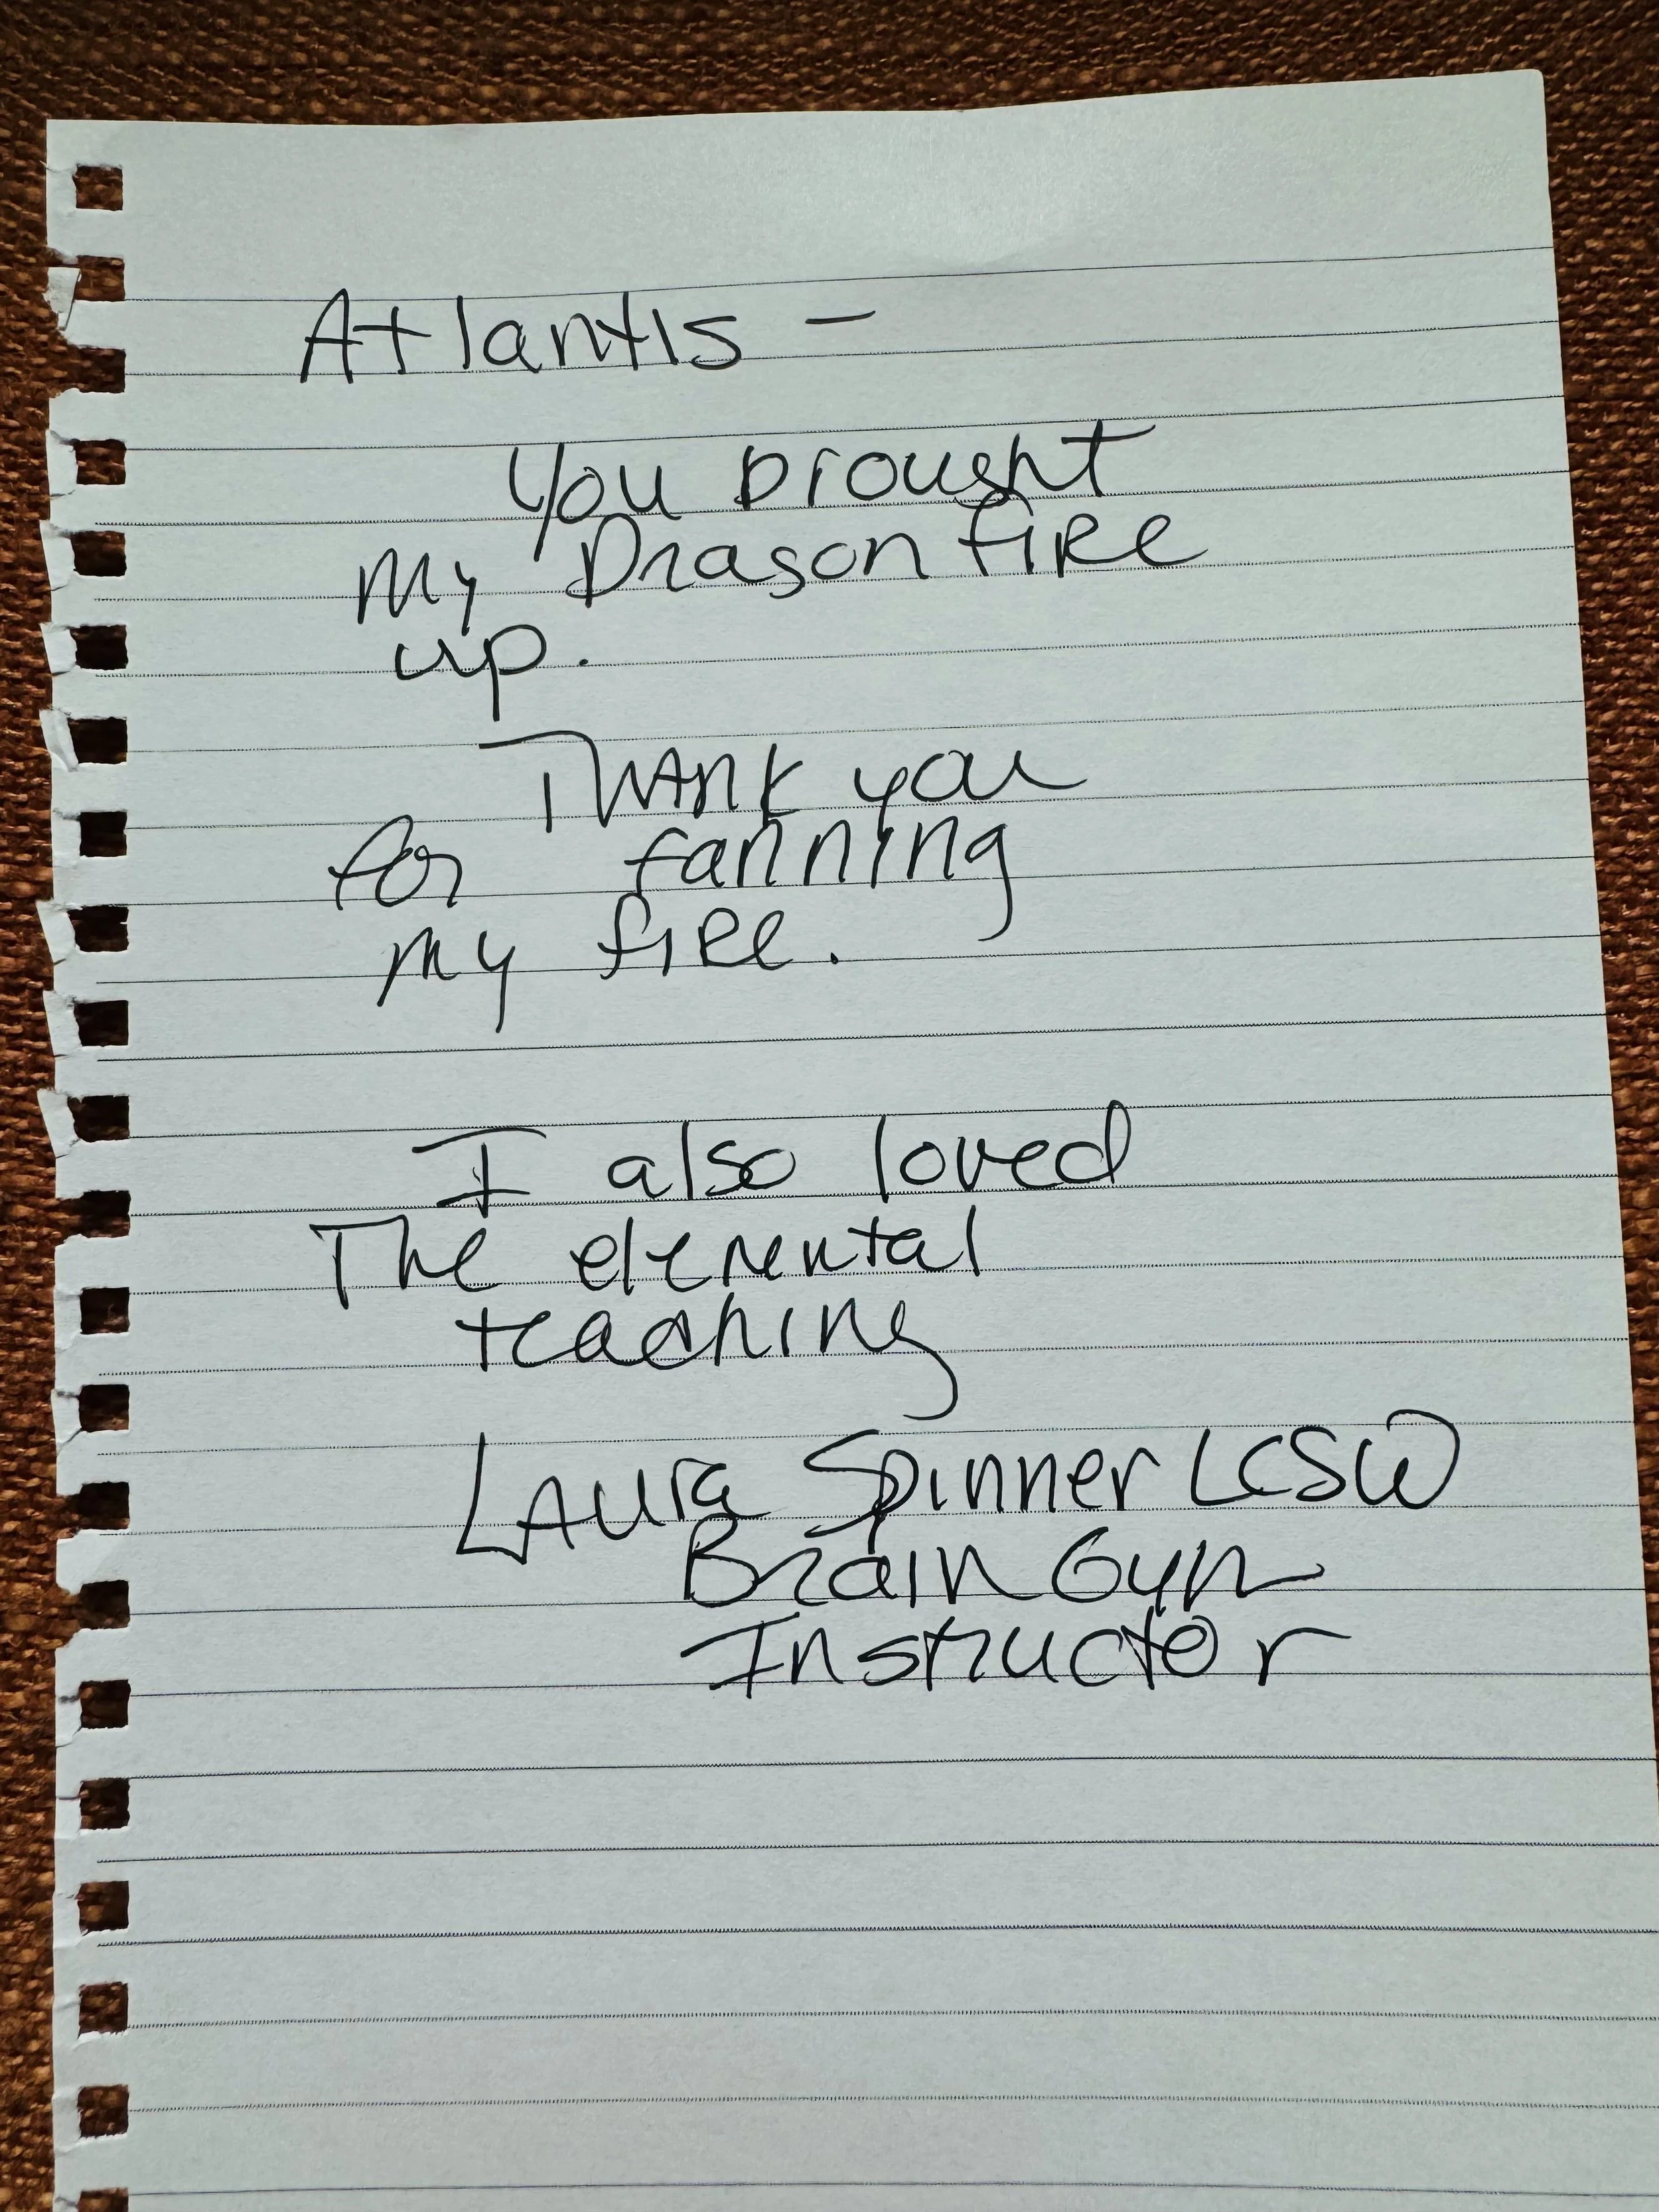 Atlantis -
You brought
my Dragon fire
up.
Thank you
for fanning
my fire.
I also loved
The elemental
teaching
Laura Spinner LCSW
Brain Gym
Instructor